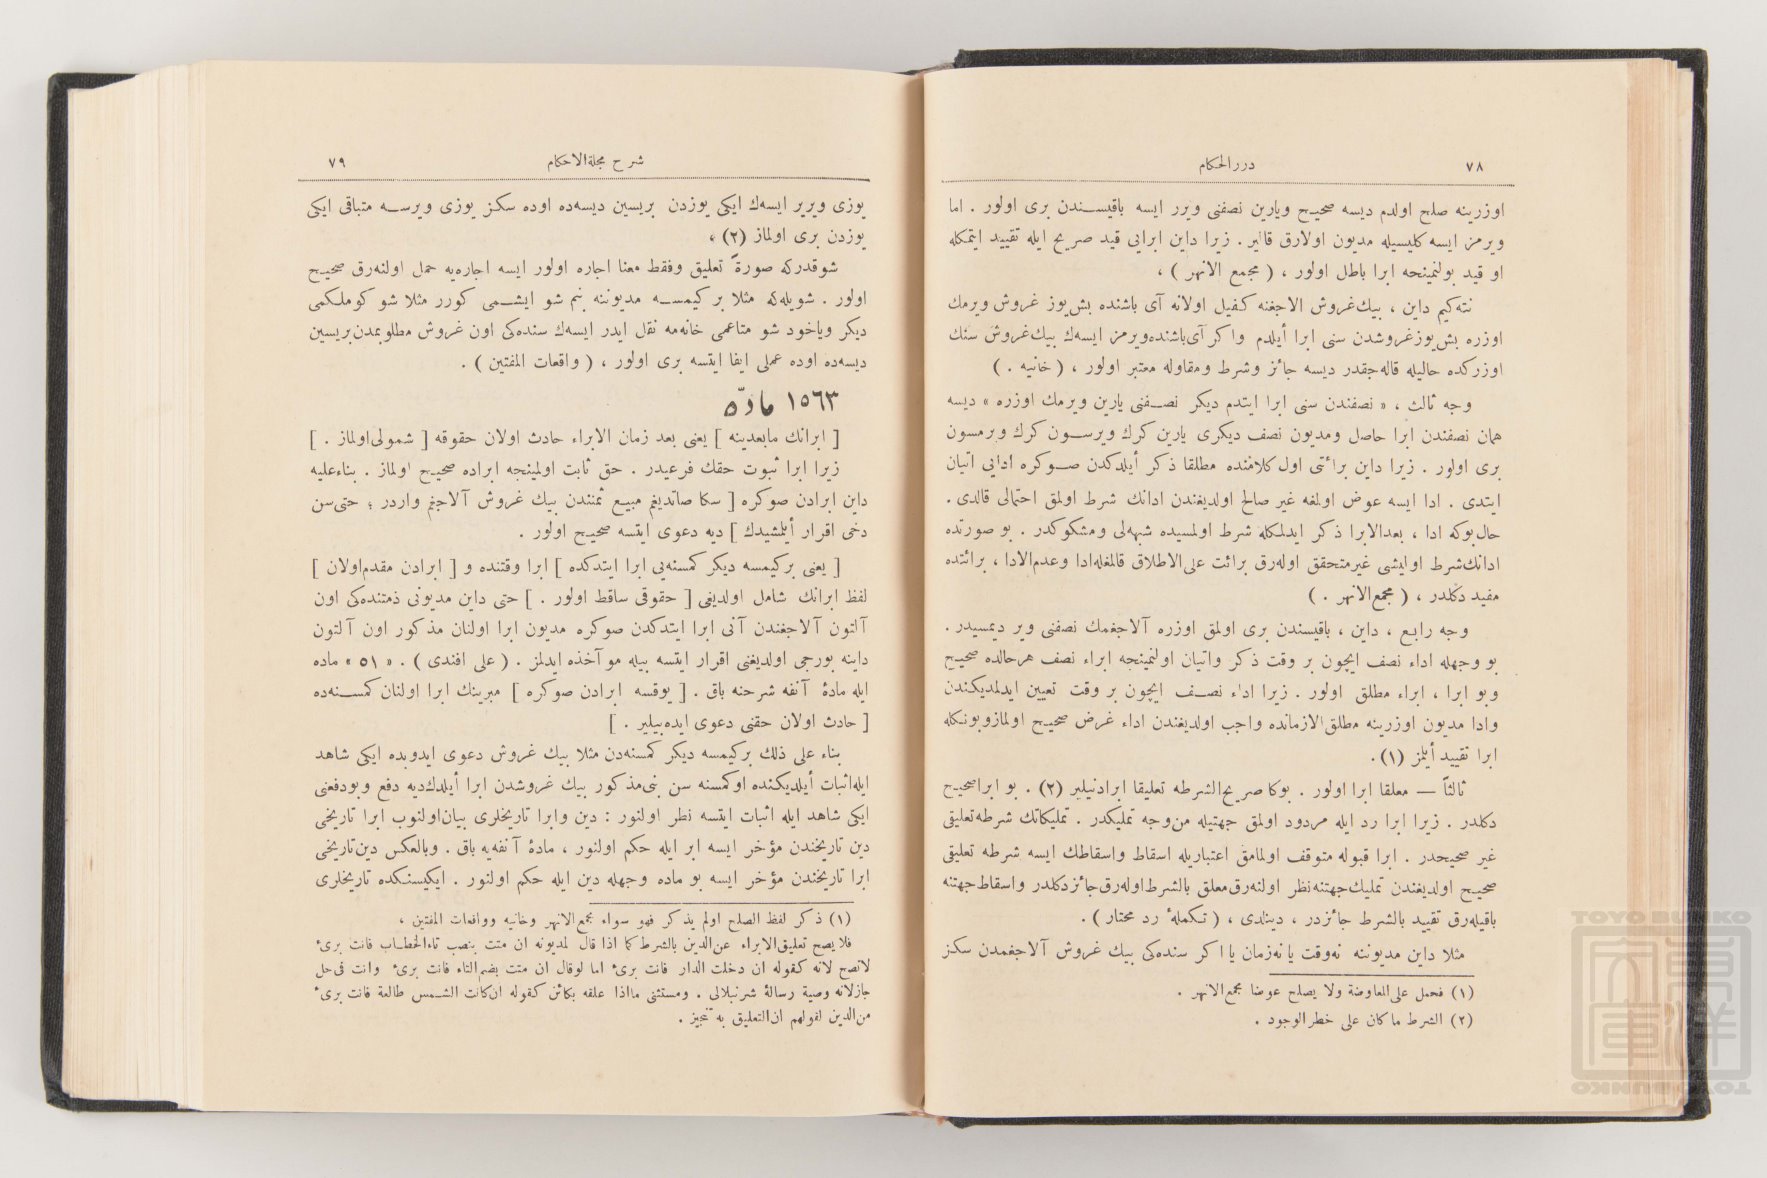 ٧٨
دررالحكام
اوزرينه صلح اولدم ديسه صحيح ويارين نصفنى ويرر ايسه باقيسندن برى اولور . اما
ويرمز ايسه كليسيله مديون اولارق قالير . زيرا داين ابرايى قيد صريح ايله تقييد ايتمكله
او قيد بولنمينجه ابرا باطل اولور ، ( مجمع الانهر ) ،
نته‌كيم داين ، بيك‌غروش الاجغنه كفيل اولانه آى باشنده بش‌يوز غروش ويرمك
اوزره بش‌يوزغروشدن سنى ابرا أيلدم واكر آى‌باشنده‌ويرمز ايسه‌ك بيك‌غروش سنك
اوزركده حاليله قاله‌جقدر ديسه جائز وشرط ومقاوله معتبر اولور ، ( خانيه . )
وجه ثالث ، « نصفندن سنى ابرا ايتدم ديكر نصفنى يارين ويرمك اوزره » ديسه
همان نصفندن ابرا حاصل ومديون نصف ديكرى يارين كرك ويرسون كرك ويرمسون
برى اولور . زيرا داين برائتى اول كلامنده مطلقا ذكر أيلدكدن صوكره ادايى اتيان
ايتدى . ادا ايسه عوض اولمغه غير صالح اولديغندن ادانك شرط اولمق احتمالى قالدى .
حال‌بوكه ادا ، بعدالابرا ذكر ايدلمكله شرط اولمسيده شبهه‌لى ومشكوكدر . بو صورتده
ادانك‌شرط اولايشى غيرمتحقق اوله‌رق برائت على‌الاطلاق قالمغله‌ادا وعدم‌الادا ، برائتده
مفيد دكلدر ، ( مجمع‌الانهر . )
وجه رابع ، داين ، باقيسندن برى اولمق اوزره آلاجغمك نصفنى وير ديمسيدر .
بو وجهله اداء نصف ايچون بر وقت ذكر واتيان اولنمينجه ابراء نصف هرحالده صحيح
وبو ابرا ، ابراء مطلق اولور . زيرا اداء نصف ايچون بر وقت تعيين ايدلمديكندن
وادا مديون اوزرينه مطلق‌الازمانده واجب اولديغندن اداء غرض صحيح اولمازوبونكله
ابرا تقييد أيلمز (١).
ثالثاً — معلقا ابرا اولور . بوكا صريح‌الشرطه تعليقا ابرادنيلير (٢) . بو ابراصحيح
دكلدر . زيرا ابرا رد ايله مردود اولمق جهتيله من‌وجه تمليكدر . تمليكاتك شرطه‌تعليقى
غير صحيحدر . ابرا قبوله متوقف اولمامق اعتباريله اسقاط واسقاطك ايسه شرطه تعليقى
صحيح اولديغندن تمليك‌جهتنه‌نظر اولنه‌رق‌معلق بالشرط‌اوله‌رق‌جائزدكلدر واسقاط‌جهتنه
باقيله‌رق تقييد بالشرط جائزدر ، دينلدى ، ( تكملهٔ رد محتار ) .
مثلا داين مديوننه نه‌وقت يا نه‌زمان يا اكر سنده‌كى بيك غروش آلاجغمدن سكز
(١) فحمل على‌المعاوضة ولا يصلح عوضا مجمع‌الانهر .
(٢) الشرط ماكان على خطرالوجود .
شرح مجلةالاحكام
٧٩
يوزى ويرير ايسه‌ك ايكى يوزدن بريسين ديسه‌ده اوده سكز يوزى ويرسه متباقى ايكى
يوزدن برى اولماز (٢) ،
شوقدركه صورةً تعليق وفقط معنا اجاره اولور ايسه اجاره‌يه حمل اولنه‌رق صحيح
اولور . شويله‌كه مثلا بر كيمسه مديوننه بنم شو ايشمى كورر مثلا شو كوملكمى
ديكر وياخود شو متاعمى خانه‌مه نقل ايدر ايسه‌ك سنده‌كى اون غروش مطلوبمدن‌بريسين
ديسه‌ده اوده عملى ايفا ايتسه برى اولور ، ( واقعات المفتين ) .
١٥٦٣ مادّه
[ ابرانك مابعدينه ] يعنى بعد زمان الابراء حادث اولان حقوقه [ شمولى‌اولماز . ]
زيرا ابرا ثبوت حقك فرعيدر . حق ثابت اولمينجه ابراده صحيح اولماز . بناءعليه
داين ابرادن صوكره [ سكا صاتديغم مبيع ثمنندن بيك غروش آلاجغم واردر ؛ حتى‌سن
دخى اقرار أيلمشيدك ] ديه دعوى ايتسه صحيح اولور .
[ يعنى بركيمسه ديكر كمسنه‌يى ابرا ايتدكده ] ابرا وقتنده و [ ابرادن مقدم‌اولان ]
لفظ ابرانك شامل اولديغى [ حقوقى ساقط اولور . ] حتى داين مديونى ذمتنده‌كى اون
آلتون آلاجغندن آنى ابرا ايتدكدن صوكره مديون ابرا اولنان مذكور اون آلتون
داينه بورجى اولديغنى اقرار ايتسه بيله موآخذه ايدلمز . ( على افندى ) . « ٥١ » ماده
ايله مادهٔ آنفه شرحنه باق . [ يوقسه ابرادن صوكره ] مبرينك ابرا اولنان كمسنه‌ده
[ حادث اولان حقنى دعوى ايده‌بيلير . ]
بناء على ذلك بركيمسه ديكر كمسنه‌دن مثلا بيك غروش دعوى ايدوبده ايكى شاهد
ايله‌اثبات أيلديكنده اوكمسنه سن بنى‌مذكور بيك غروشدن ابرا أيلدك‌ديه دفع وبودفعنى
ايكى شاهد ايله اثبات ايتسه نظر اولنور : دين وابرا تاريخلرى بيان‌اولنوب ابرا تاريخى
دين تاريخندن مؤخر ايسه ابر ايله حكم اولنور ، مادهٔ آنفه‌يه باق . وبالعكس دين‌تاريخى
ابرا تاريخندن مؤخر ايسه بو ماده وجهله دين ايله حكم اولنور . ايكيسنكده تاريخلرى
(١) ذكر لفظ الصلح اولم يذكر فهو سواء مجمع‌الانهر وخانيه وواقعات المفتين ،
فلا يصح تعليق‌الابراء عن‌الدين بالشرط كما اذا قال لمديونه ان مت بنصب تاءالخطاب فانت برىٔ
لاتصح لانه كقوله ان دخلت الدار فانت برىٔ اما لوقال ان مت بضم‌التاء فانت برىٔ وانت فى‌حل
جازلانه وصية رسالهٔ شرنبلالى . ومستثنى مااذا علقه بكائن كقوله ان‌كانت الشمس طالعة فانت برىٔ
من‌الدين لقولهم ان‌التعليق به تنجيز .